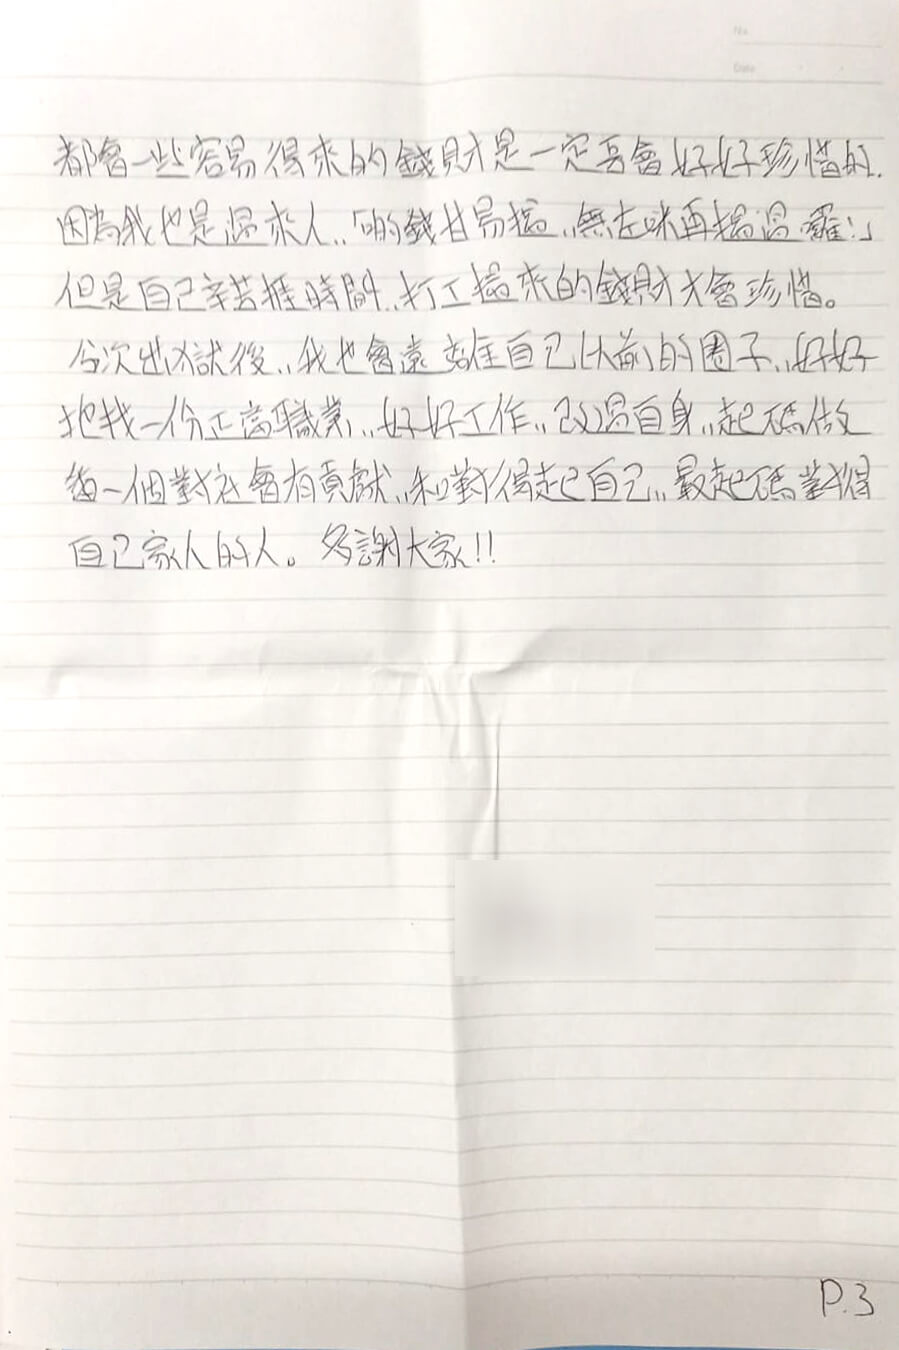 No.
Date
都會一些容易得來的錢財是一定吾會好好珍惜的.
因為我也是過來人,,「啲錢甘易搵,,無左咪再搵過囉!」
但是自己辛苦捱時間,,打工搵來的錢財才會珍惜。
今次出獄後,,我也會遠離自己以前的圈子,,好好
地找一份正當職業,,好好工作,,改過自身,,起碼做
番一個對社會有貢獻,,和對得起自己,,最起碼對得
自己家人的人。多謝大家!!
P.3